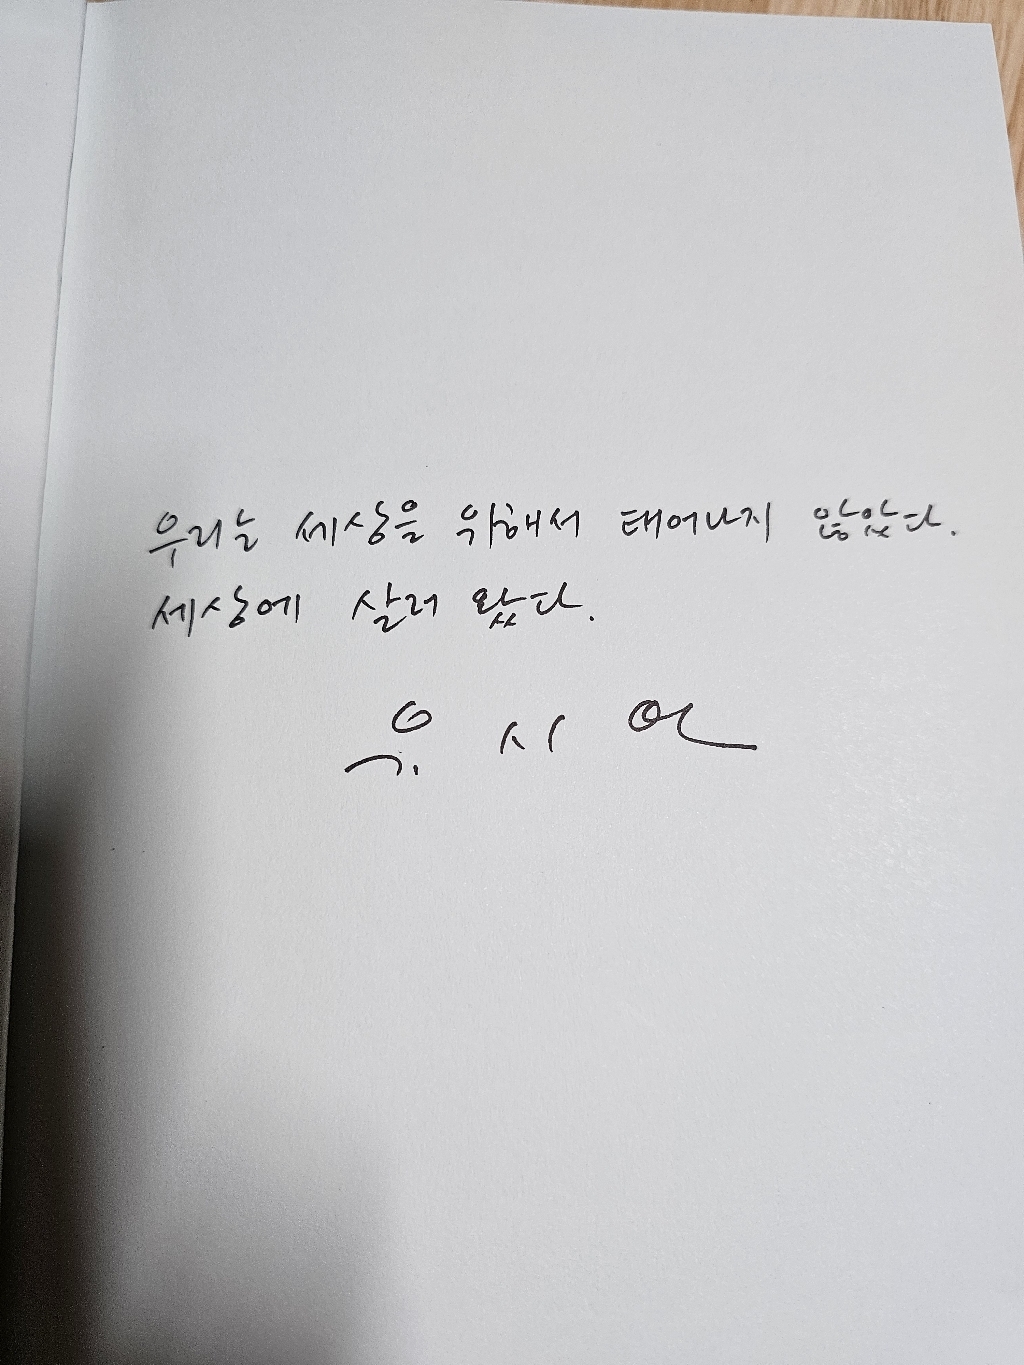 우리는 세상을 위해서 태어나지 않았다.
세상에 살러 왔다.
유시민